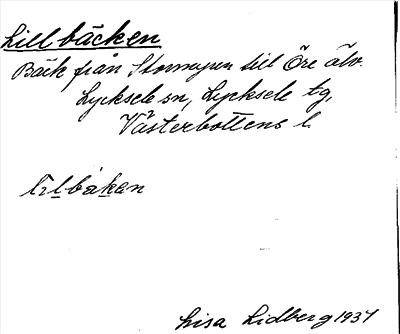 Lillbäcken
Bäck från Stormyren till Öre älv.
Lycksele sn, Lycksele tg,
Västerbottens l.
Lisa Lidberg 1937